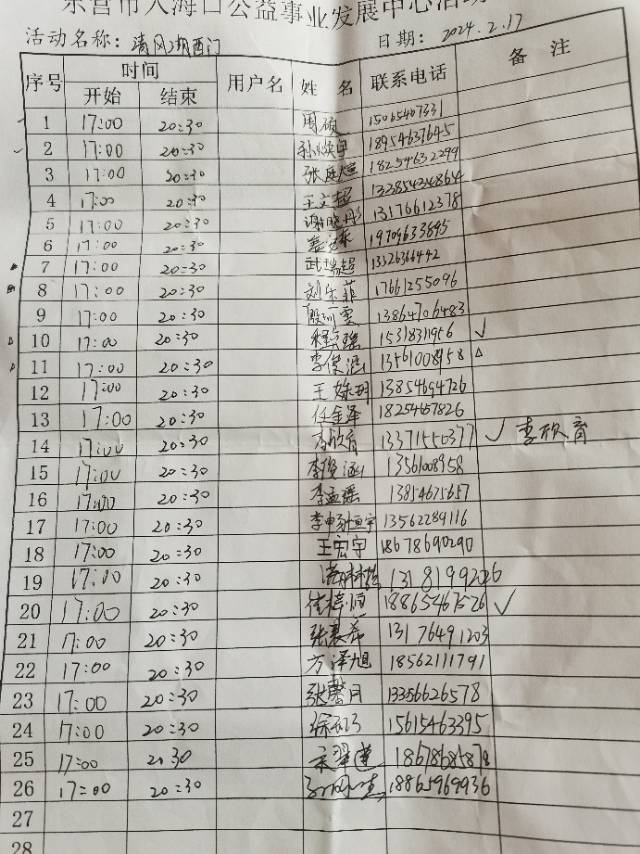 东营市入海口公益事业发展中心活动
活动名称：清风湖西门 日期：2024.2.17
序号 时间 用户名 姓名 联系电话 备注
开始 结束
1 17:00 20:30 周硕 15065407331
2 17:00 20:30 18954637645
3 17:00 20:30 张庭煊 18254632299
4 17:00 20:30 王文超 13285434864
5 17:00 20:30 谢晓彤 13176612378
6 17:00 20:30 19709633845
7 17:00 20:30 武瑞超 13326366442
8 17:00 20:30 刘乐菲 17661255096
9 17:00 20:30 13864706483
10 17:00 20:30 15318311956 ✓
11 17:00 20:30 李俊涵 13561008958 △
12 17:00 20:30 王姝玥 13854694726
13 17:00 20:30 任金泽 18254657826
14 17:00 20:30 李欣育 13371550377 ✓ 李欣育
15 17:00 20:30 李俊涵 13561008958
16 17:00 20:30 李孟瑶 13854675657
17 17:00 20:30 13562289116
18 17:00 20:30 王宏宇 18678690290
19 17:00 20:30 13181992026
20 17:00 20:30 18865467526 ✓
21 17:00 20:30 张慕希 13176491203
22 17:00 20:30 方泽旭 18562111791
23 17:00 20:30 张馨月 13356626578
24 17:00 20:30 15615463395
25 17:00 20:30 18678685878
26 17:00 20:30 18865969936
27
28